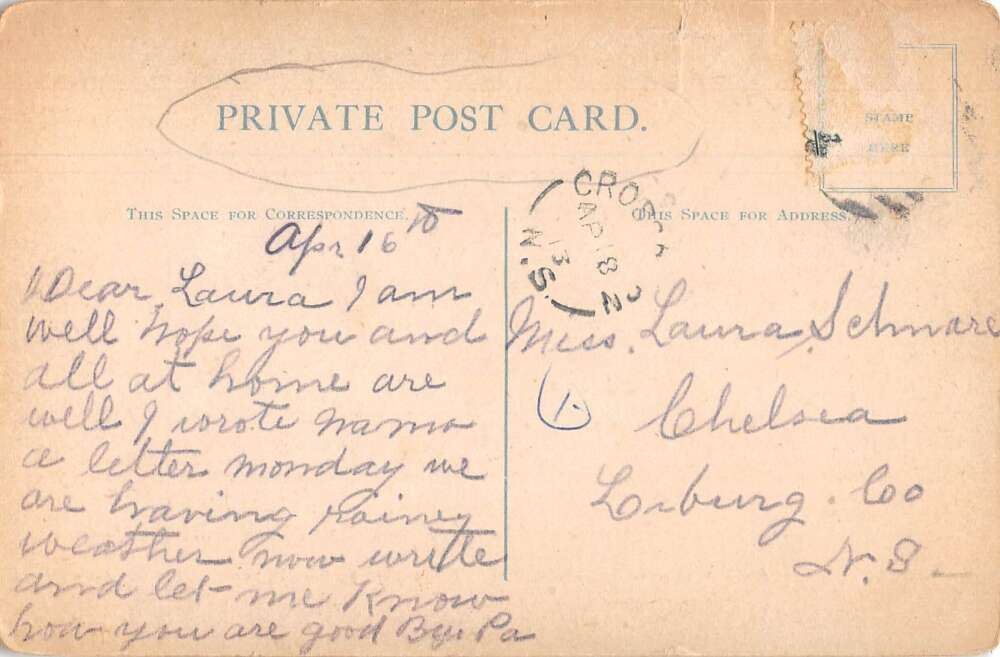 PRIVATE POST CARD.
STAMP
HERE
THIS SPACE FOR CORRESPONDENCE.
THIS SPACE FOR ADDRESS.
AP 18
13
N.S.
Apr 16th
Dear Laura I am
well hope you and
all at home are
well I wrote mama
a letter monday we
are having rainey
weather now write
and let me Know
how you are good Bye Pa
Miss. Laura Schnare
Chelsea
L-burg. Co
N.S.
1.